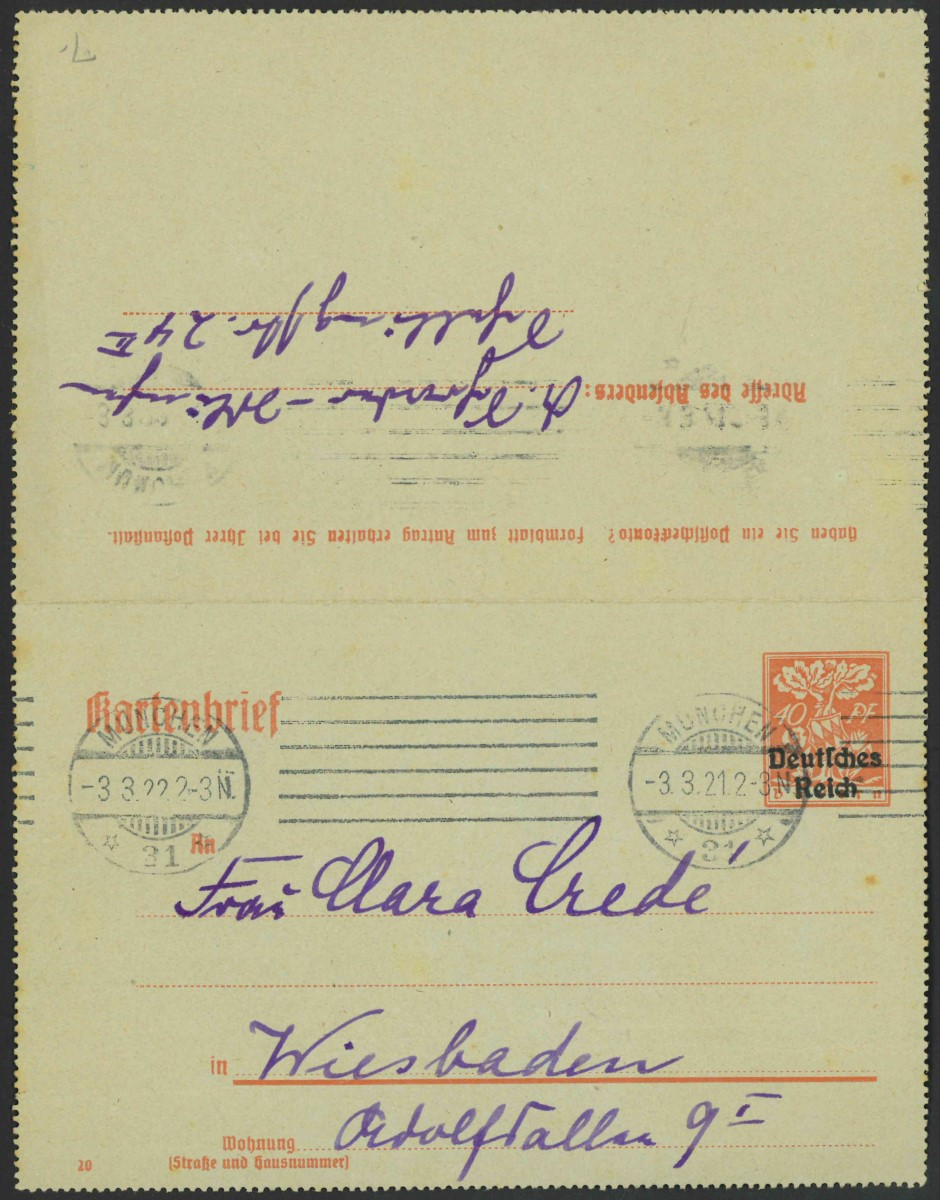 Haben Sie ein Postscheckkonto? Formblatt zum Antrag erhalten Sie bei Ihrer Postanstalt.
Adresse des Absenders:
str. 24 II
Kartenbrief
40 PF
Deutsches
Reich
MÜNCHEN
-3.3.22.2-3N.
31
MÜNCHEN
-3.3.21.2-3N.
31
An
Frau Clara Credé
in Wiesbaden
Wohnung Adolfsallee 9 I
(Straße und Hausnummer)
20